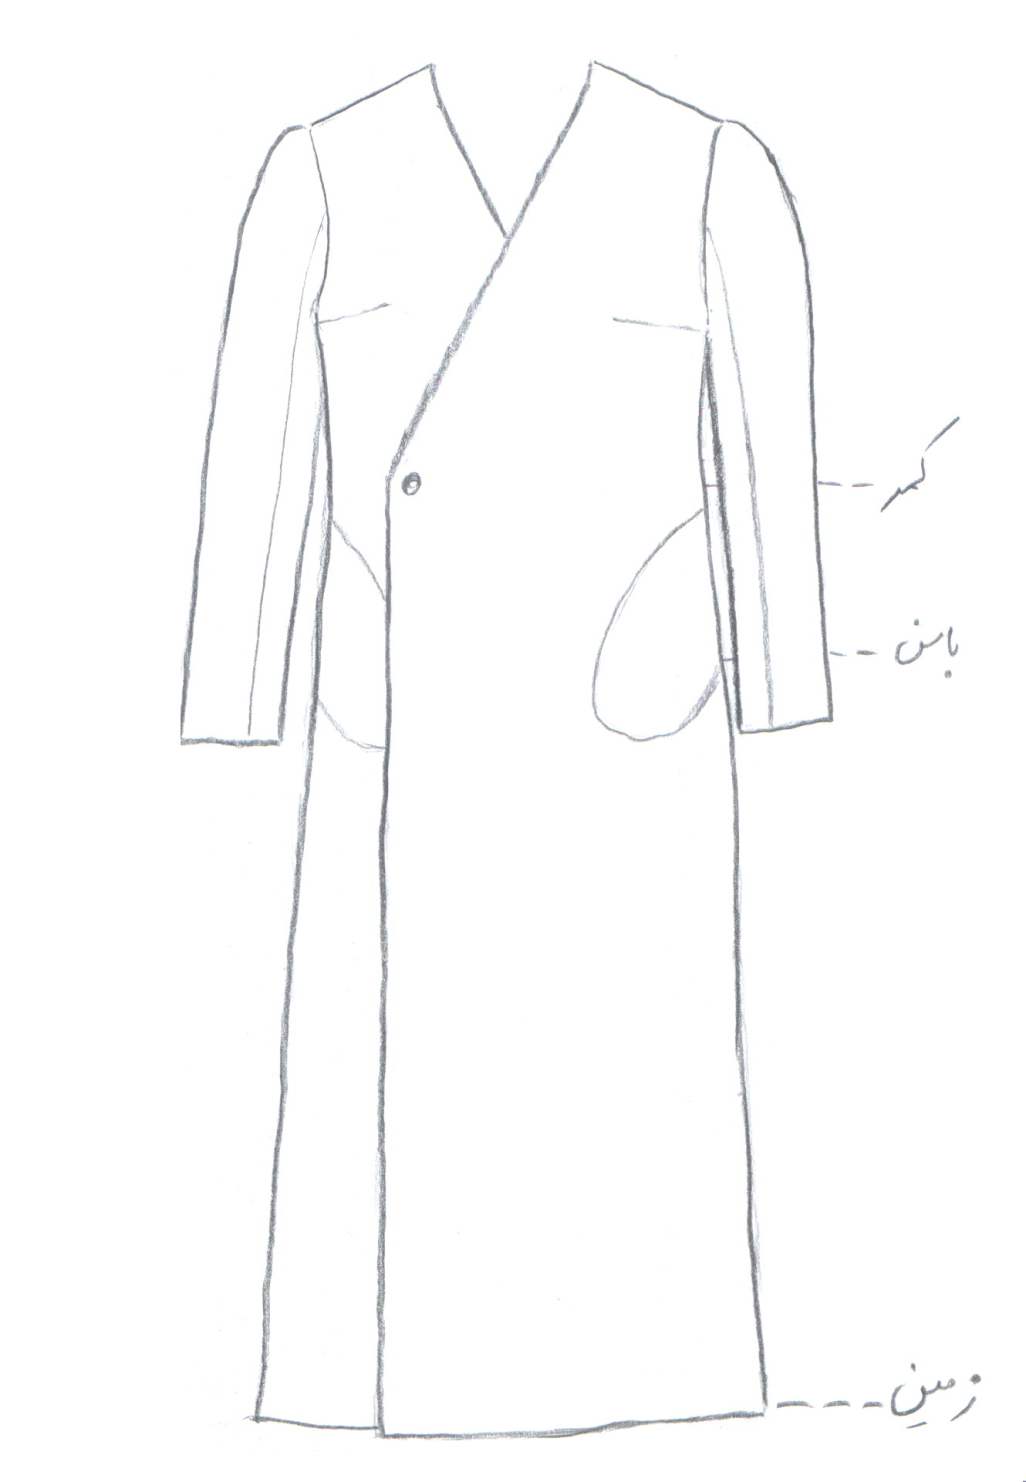 کمر
باسن
زمین